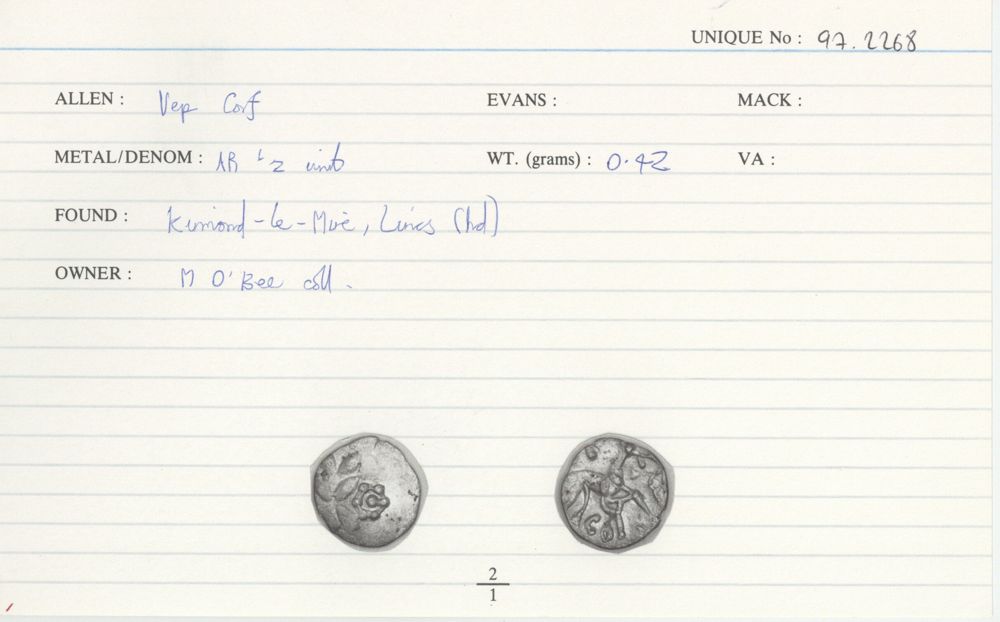 UNIQUE No : 97.2268
ALLEN : Vep Corf EVANS : MACK :
METAL/DENOM : AR ½ unit WT. (grams) : 0.42 VA :
FOUND : Kirmond-le-Mire, Lincs (hd)
OWNER : M O'Bee coll.
2
1